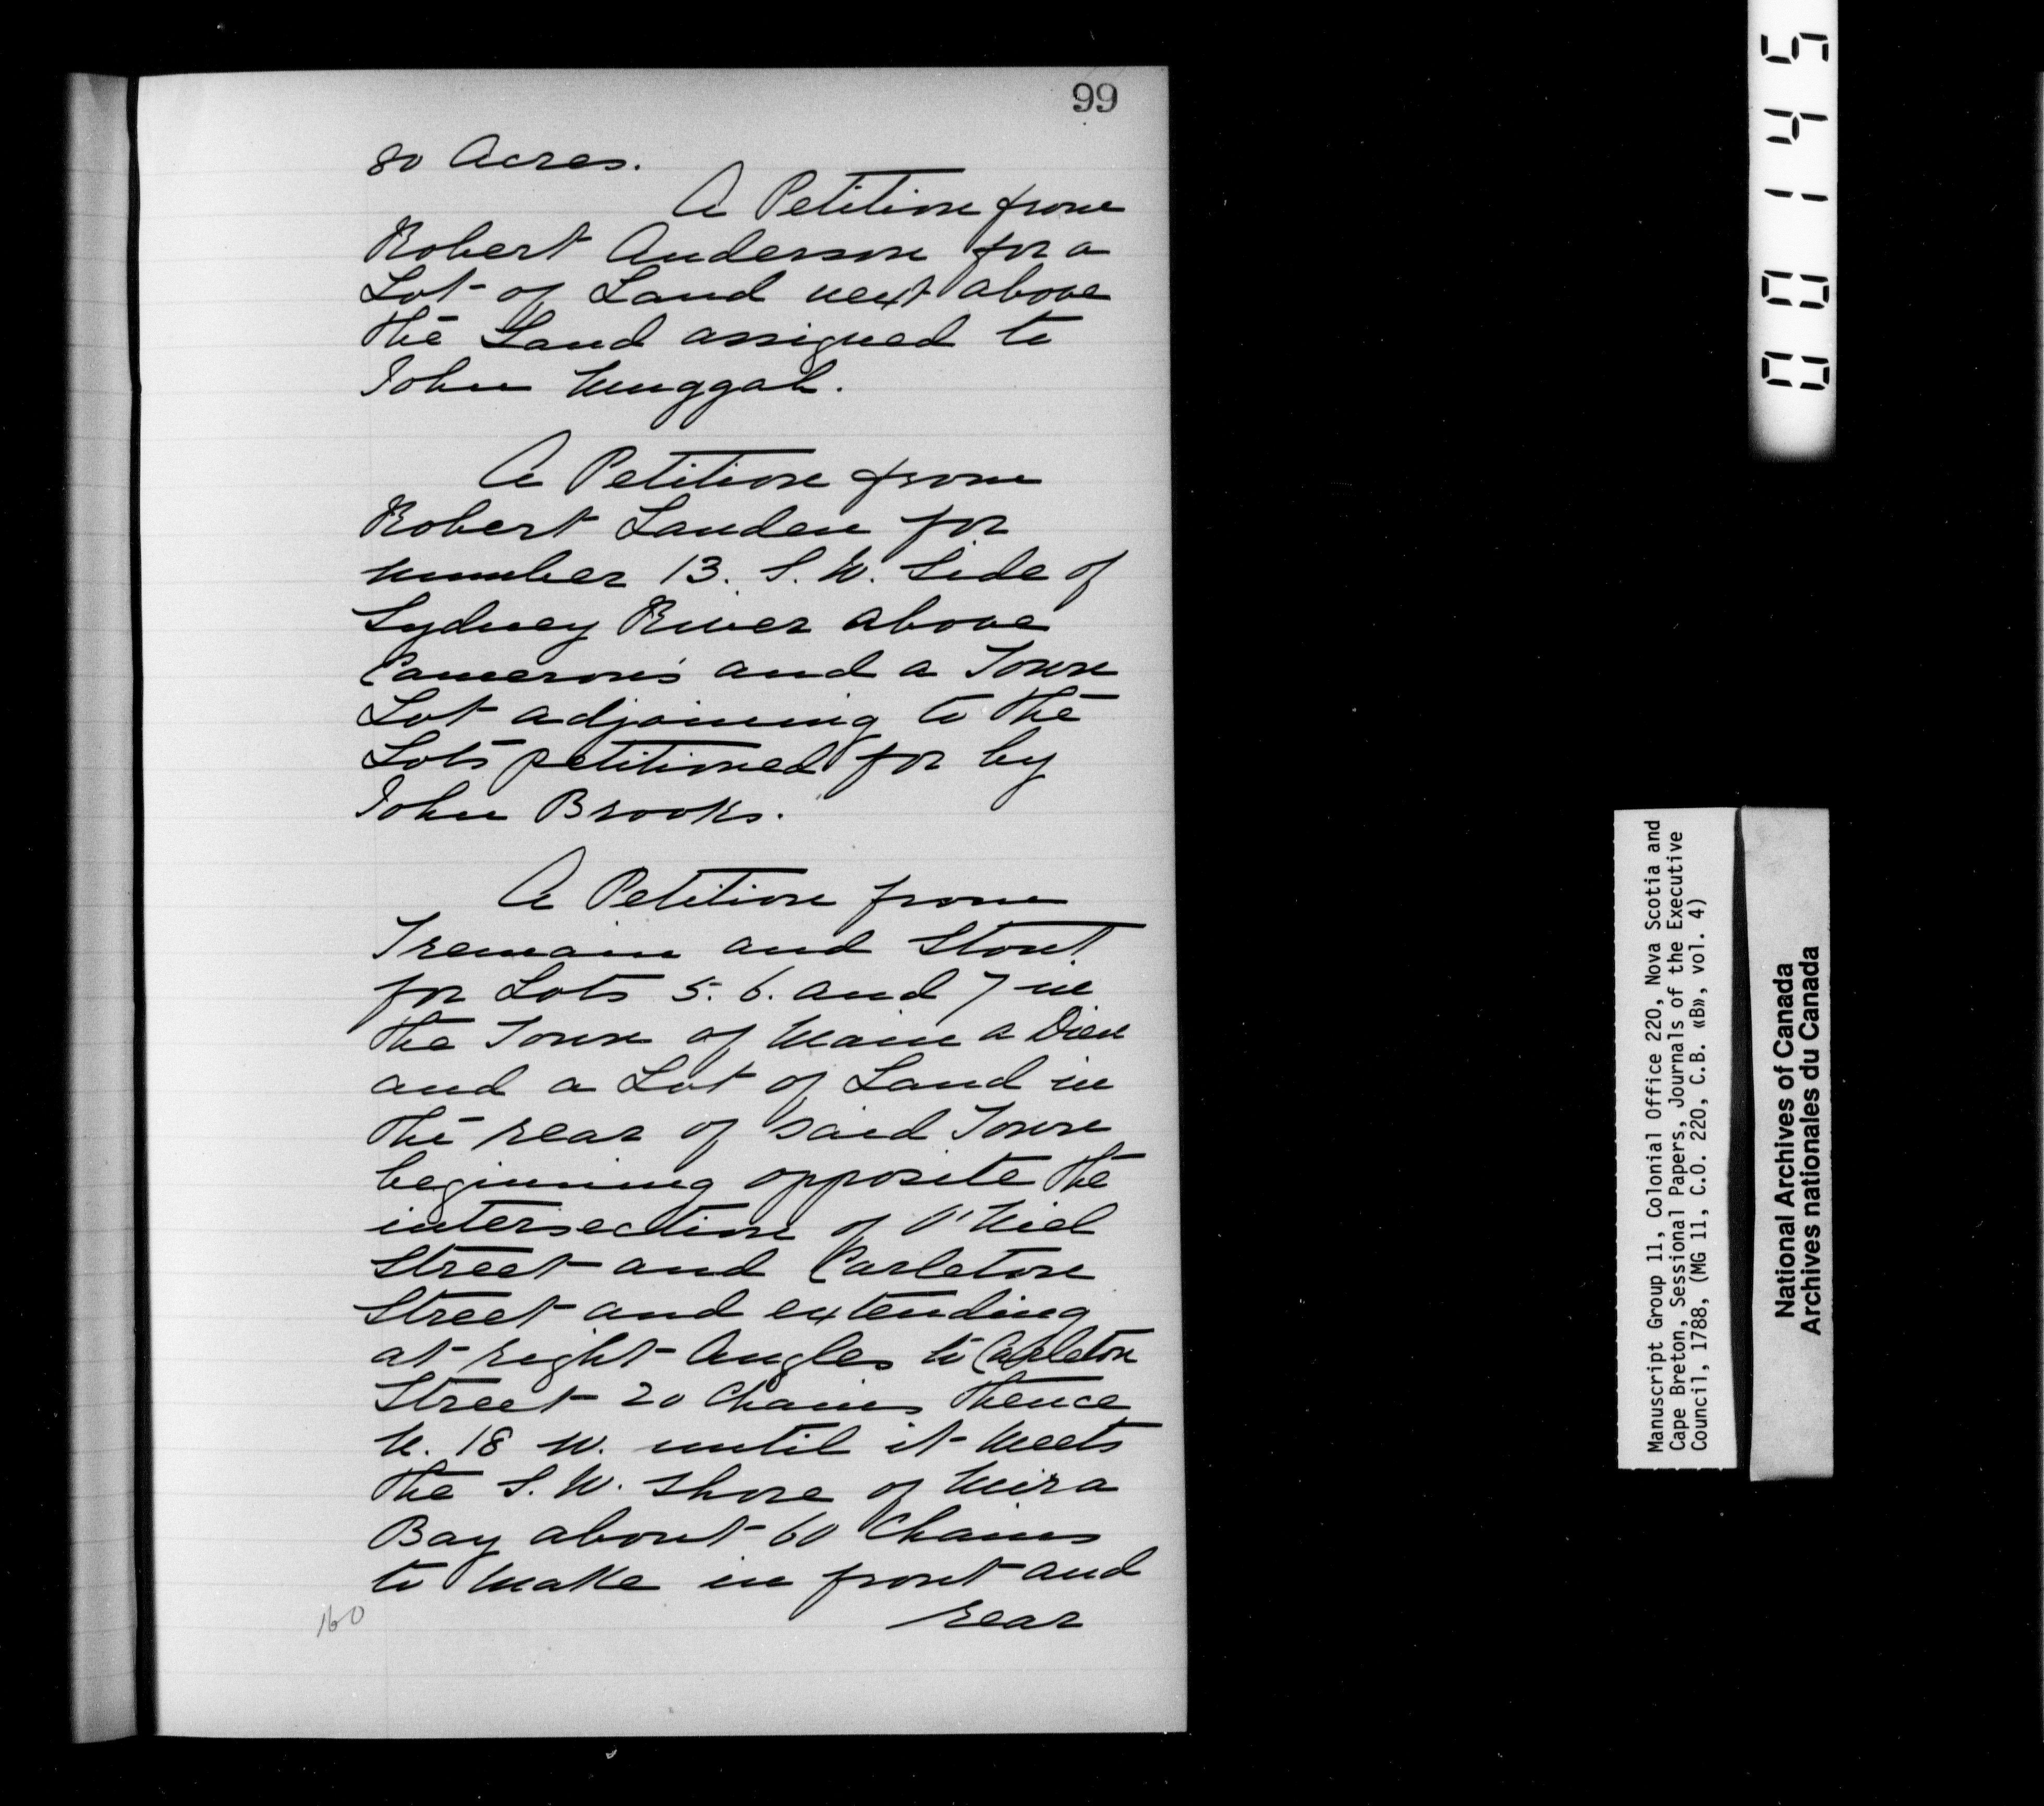 99
80 Acres.
A Petition from
Robert Anderson for a
Lot of Land next above
the Land assigned to
John Muggah.
A Petition from
Robert Landen for
number 13. S.W. Side of
Sydney River above
Cameron's and a Town
Lot adjoining to the
Lots petitioned for by
John Brooks.
A Petition from
Tremain and Stout
for Lots 5. 6. and 7 in
the Town of Main a Dieu
and a Lot of Land in
the rear of said Town
beginning opposite the
intersection of O'Niel
Street and Carleton
Street and extending
at right Angles to Carleton
Street 20 Chains thence
N. 18 W. until it meets
the S.W. shore of Mira
Bay about 60 Chains
to make in front and
rear
160
00145
Manuscript Group 11, Colonial Office 220, Nova Scotia and
Cape Breton, Sessional Papers, Journals of the Executive
Council, 1788, (MG 11, C.O. 220, C.B. «B», vol. 4)
National Archives of Canada
Archives nationales du Canada